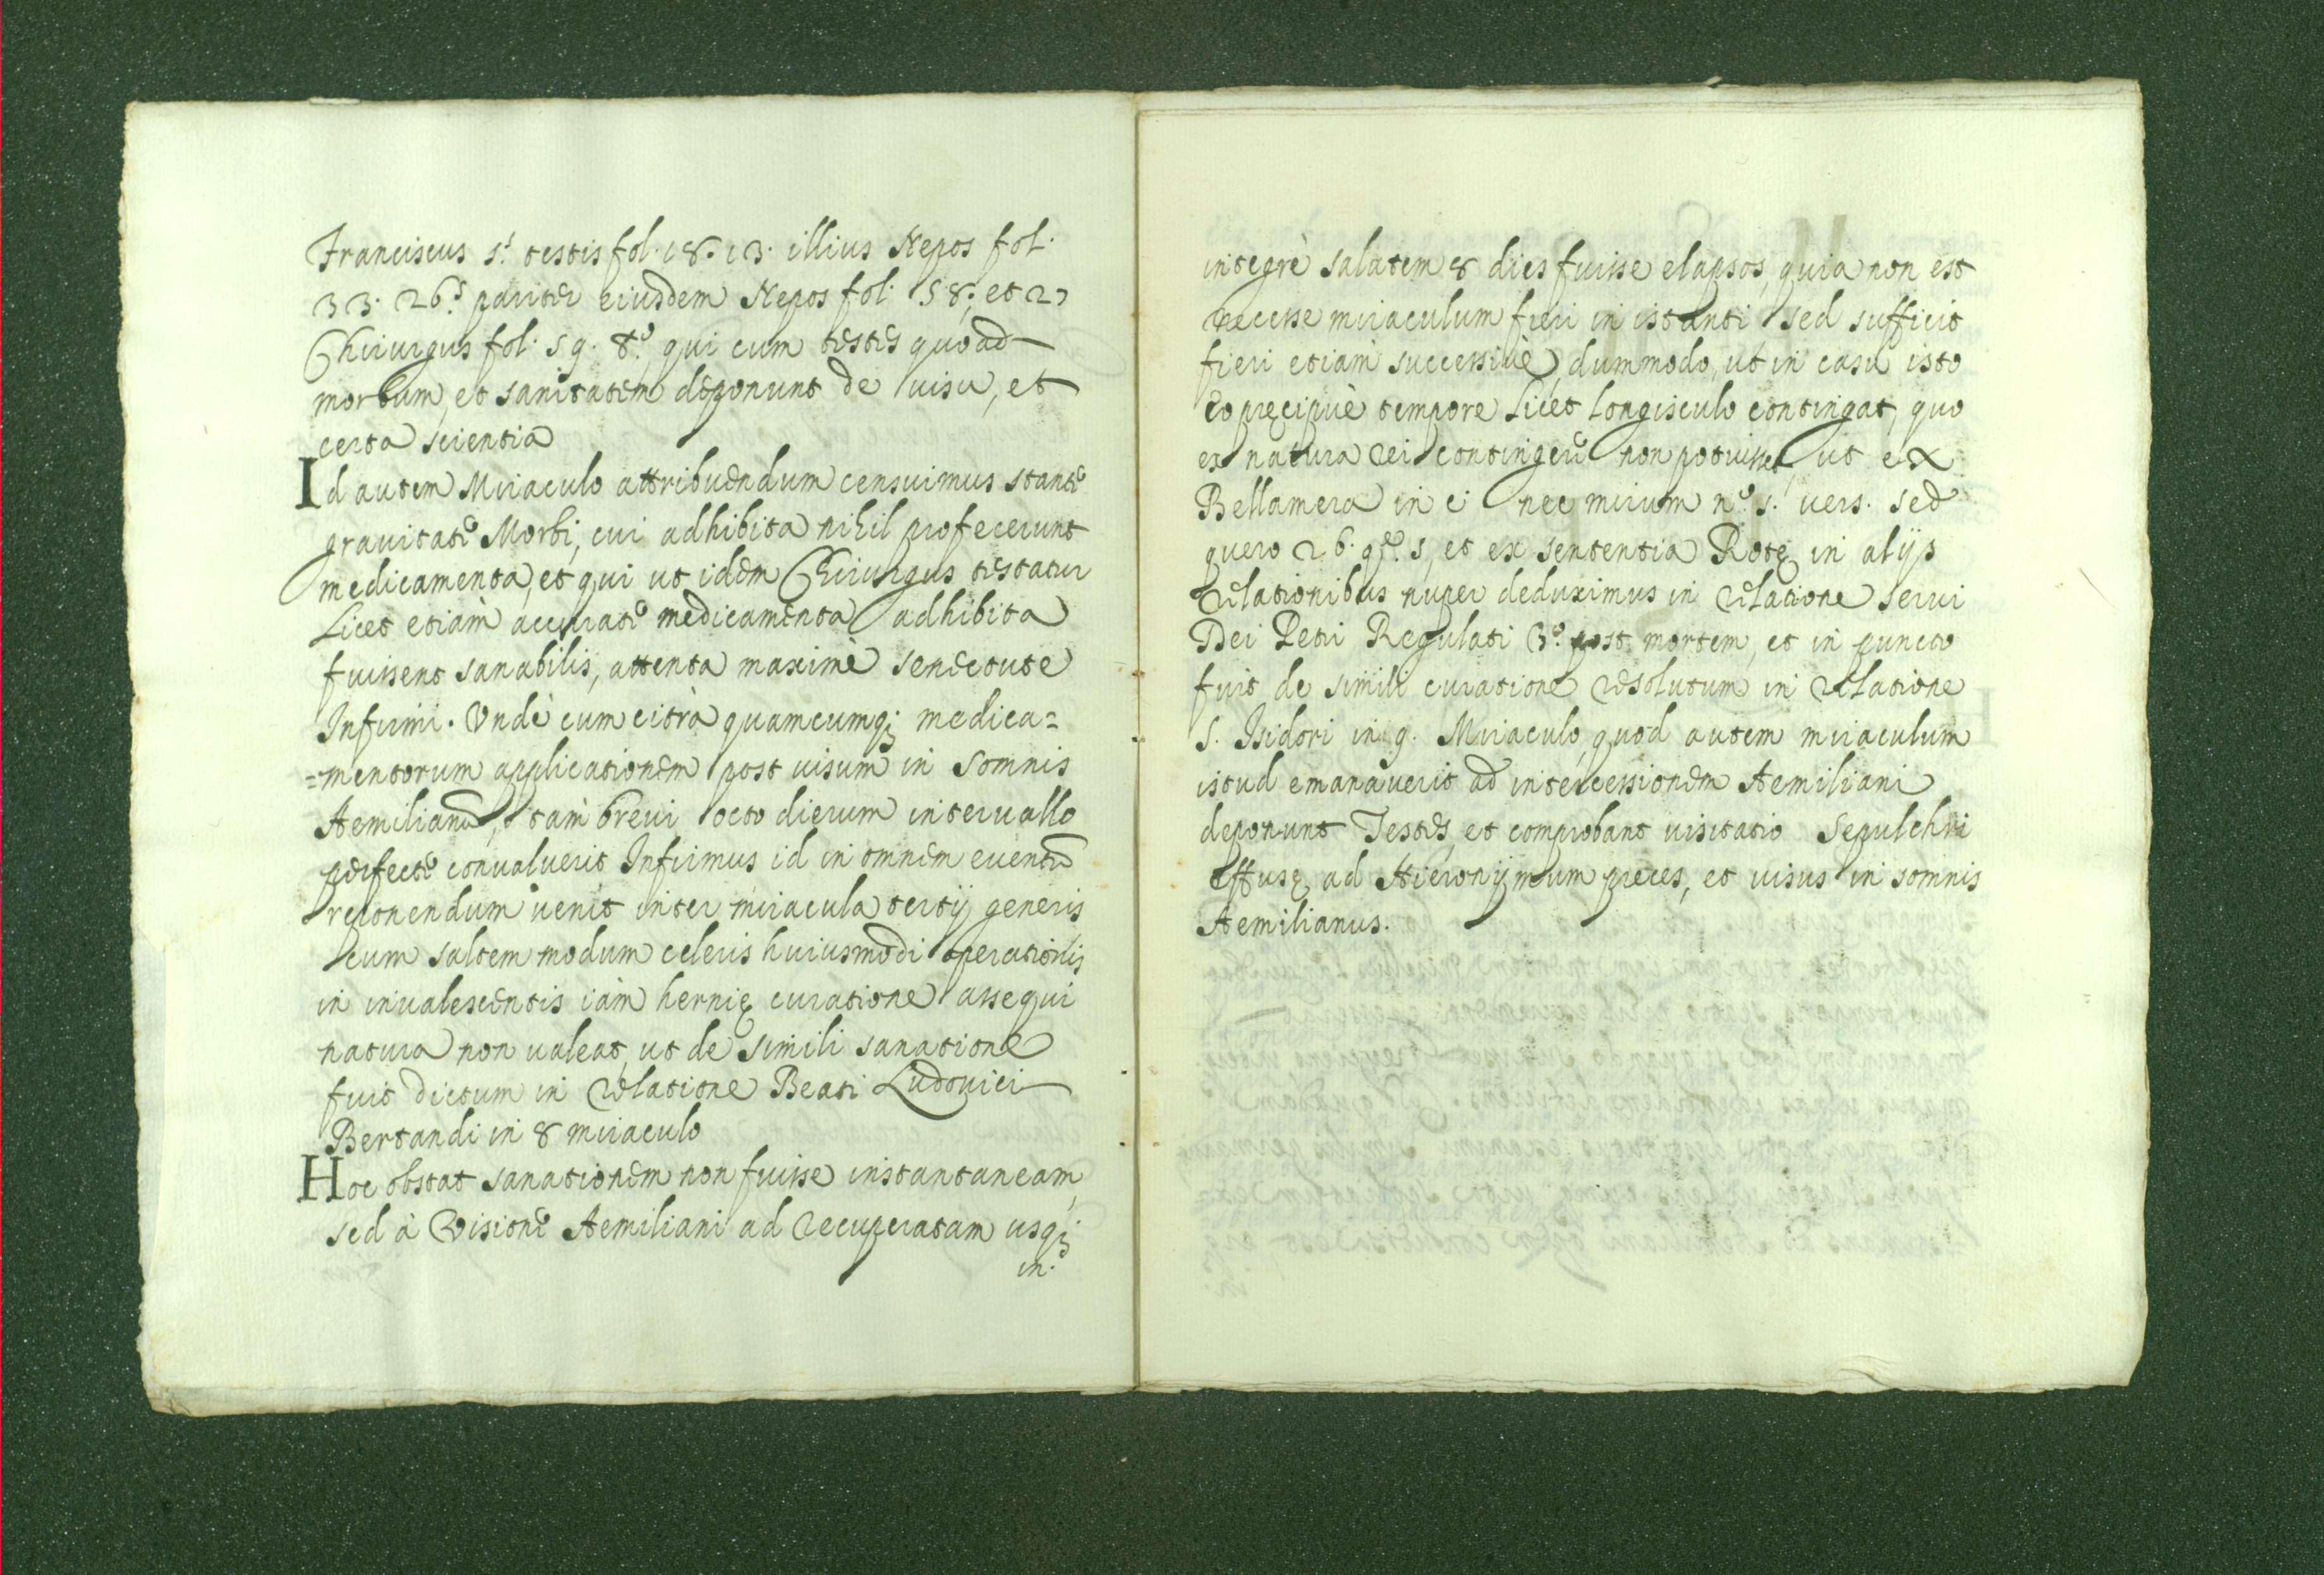 Franciscus 5.ˢ testis fol. 18. 13. illius Nepos fol.
33. 26.ˢ pariter eiusdem Nepos fol. 58. et 27
Chirurgus fol. 59. tᵒ. qui cum testes quoad
morbum, et sanitatem deponunt de uisu, et
certa scientia
Id autem Miraculo attribuendum censuimus stante
grauitate Morbi, cui adhibita nihil profecerunt
medicamenta, et qui ut idem Chirurgus testatur
Licet etiàm accurate medicamenta adhibita
fuissent sanabilis, attenta maximè senectute
Infirmi. Undè cum citrà quamcumq; medica=
=mentorum applicationem post uisum in somnis
Aemilianũ, tàm breui octo dierum interuallo
perfecte conualuerit Infirmus id in omnem euentũ
reponendum uenit inter miracula tertij generis
cum saltem modum celeris huiusmodi operationis
in inualescentis iàm hernię curatione assequi
natura non ualeat, ut de simili sanatione
fuit dictum in relatione Beati Ludouici
Bertandi in 8 miraculo
Hoc obstat sanationem non fuisse instantaneam,
sed à Visione Aemiliani ad recuperatam usq;
in.
integrè salutem 8 dies fuisse elapsos, quia non est
necesse miraculum fieri in istanti sed sufficit
fieri etiàm successiuè, dummodo, ut in casu isto
eo pręcipuè tempore Licet Longisculo contingat, quo
ex natura rei contingere non potuisset, ut ex
Bellamera in c. nec mirum nᵒ. 5. uers. sed
quero 26. qᵉ. 5, et ex sententia Rotę in alijs
relationibus nuper deduximus in relatione serui
Dei Petri Regulati 3ᵒ. post mortem, et in puncto
fuit de simili curatione resolutum in relatione
S. Isidori in 9. Miraculo, quod autem miraculum
istud emanauerit ad intercessionem Aemiliani
deponunt Testes, et comprobant uisitatio Sepulchri
effusę ad Hieronijmum preces, et uisus in somnis
Aemilianus.